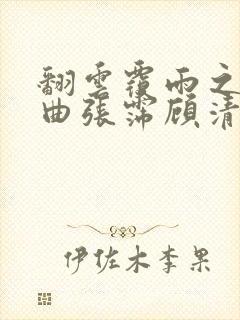 翻雲覆雨之
曲張霈顾清
伊佐木李果